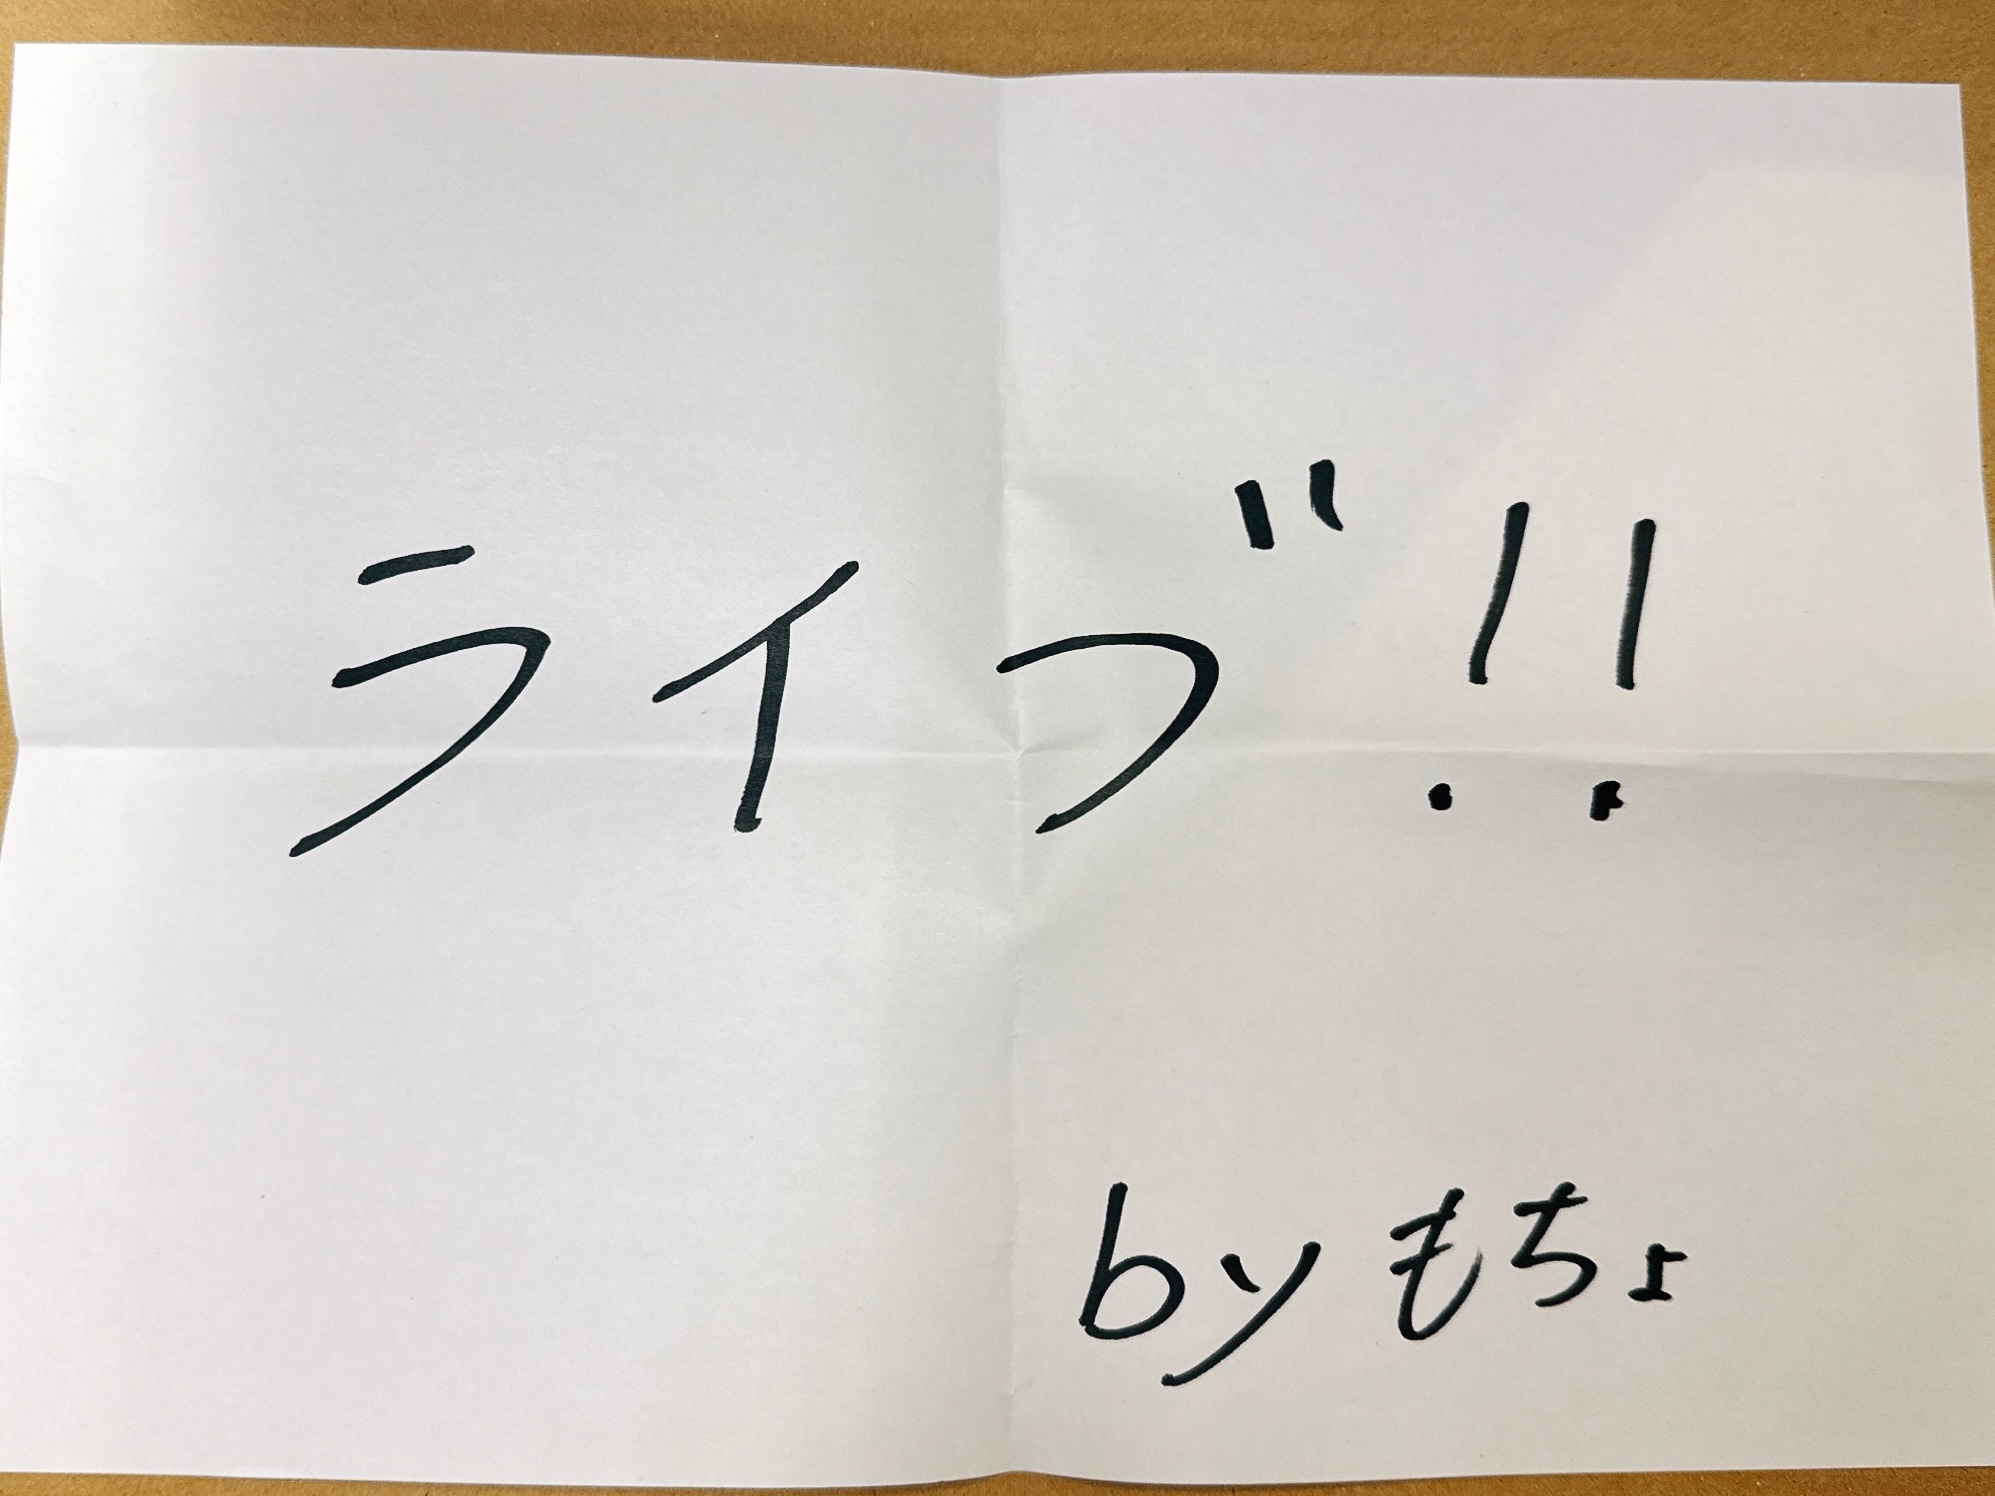 ライブ!!
by もちょ